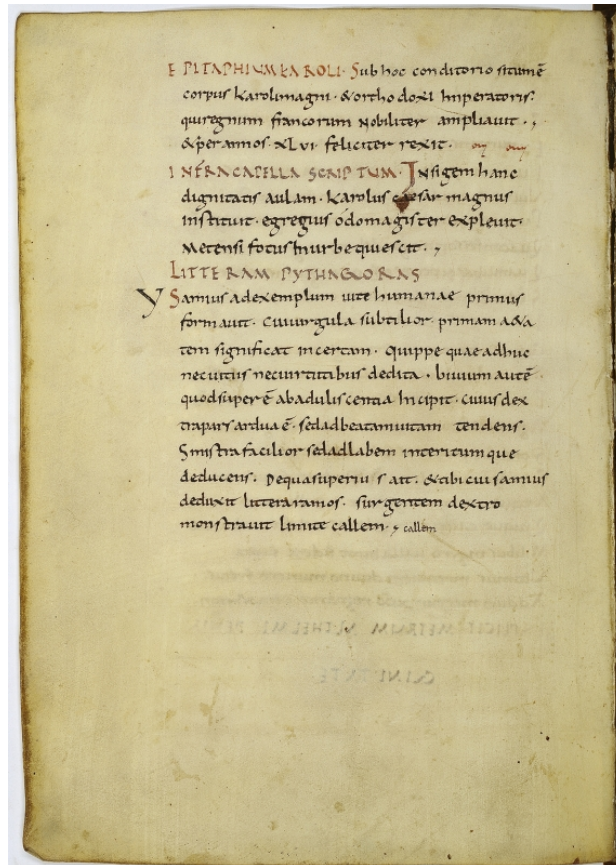 EPITAPHIUM KAROLI · Sub hoc conditorio situm ē
corpus karoli magni · & orthodoxi Imperatoris.
qui regnum francorum nobiliter ampliavit .,
& per annos · XLVI feliciter rexit.
IN FRA CAPELLA SCRIPTUM · Insigem hanc
dignitatis aulam · karolus caesar magnus
instituit · egregius odo magister explevit ·
metensi fotus In urbe quiescit . ,
LITTERAM PYTHAGORAS
Y Samius ad exemplum uite humanae primus
formauit · Cui uirgula subtilior primam
tem significat incertam · Quippe quae adhuc
nec uitiis nec uirtutibus dedita · biuium autē
quod super ē ab adulis centia Incipit · cuius dex
tra pars ardua ē · sed ad beatam uitam tendens ·
Sinistra facilior sed ad labem interitum que
deducens · De qua superiu s ait · & tibi cui samius
deduxit littera ramos · surgentem dextro
monstrauit limite callem · , callem